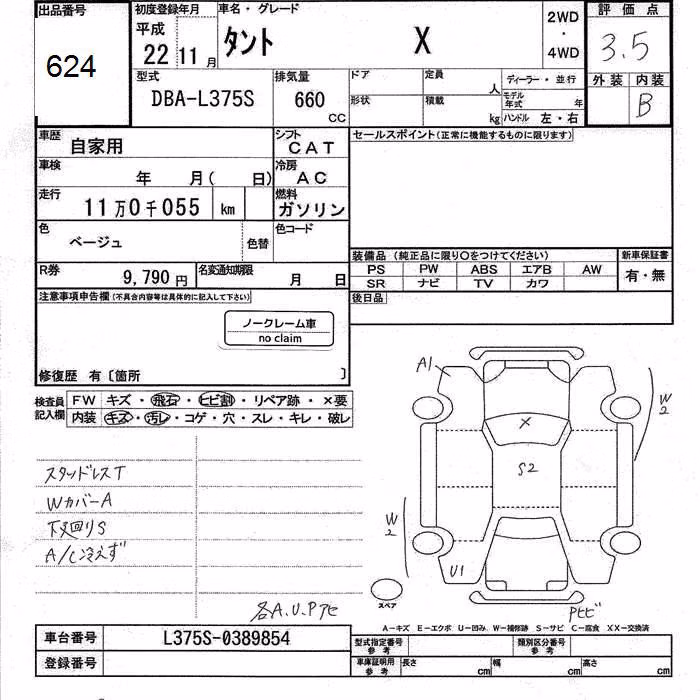 出品番号 初度登録年月 車名・グレード 評価点
624
平成
22 11月
タント X
2WD
・
4WD
3.5
外装 内装
B
型式 DBA-L375S
排気量 660 CC
ドア 定員 人 ディーラー・並行
形状 積載 kg モデル年式 年
ハンドル 左・右
車歴 自家用
シフト CAT
セールスポイント(正常に機能するものに限ります)
車検 年 月( 日)
冷房 AC
走行 11万0千055 km
燃料 ガソリン
色 ベージュ 色替
色コード
装備品 (純正品に限り○をつけてください) 新車保証書
PS PW ABS エアB AW
SR ナビ TV カワ
有・無
R券 9,790円
名変通知期限 月 日
後日品
注意事項申告欄(不具合内容等は具体的に記入して下さい)
ノークレーム車
no claim
修復歴 有〔箇所 〕
検査員記入欄
FW キズ・飛石・ヒビ割・リペア跡・×要
内装 キズ・汚レ・コゲ・穴・スレ・キレ・破レ
スタッドレスT
WカバーA
下廻りS
A/C冷えず
各A.U.Pアヒ
A1
W2
X
S2
W2
U1
スペア
Pヒビ
A−キズ E−エクボ U−凹み W−補修跡 S−サビ C−腐食 XX−交換済
車台番号 L375S-0389854
登録番号
型式指定番号 参考 類別区分番号 参考
車庫証明用 参考 長さ cm 幅 cm 高さ cm